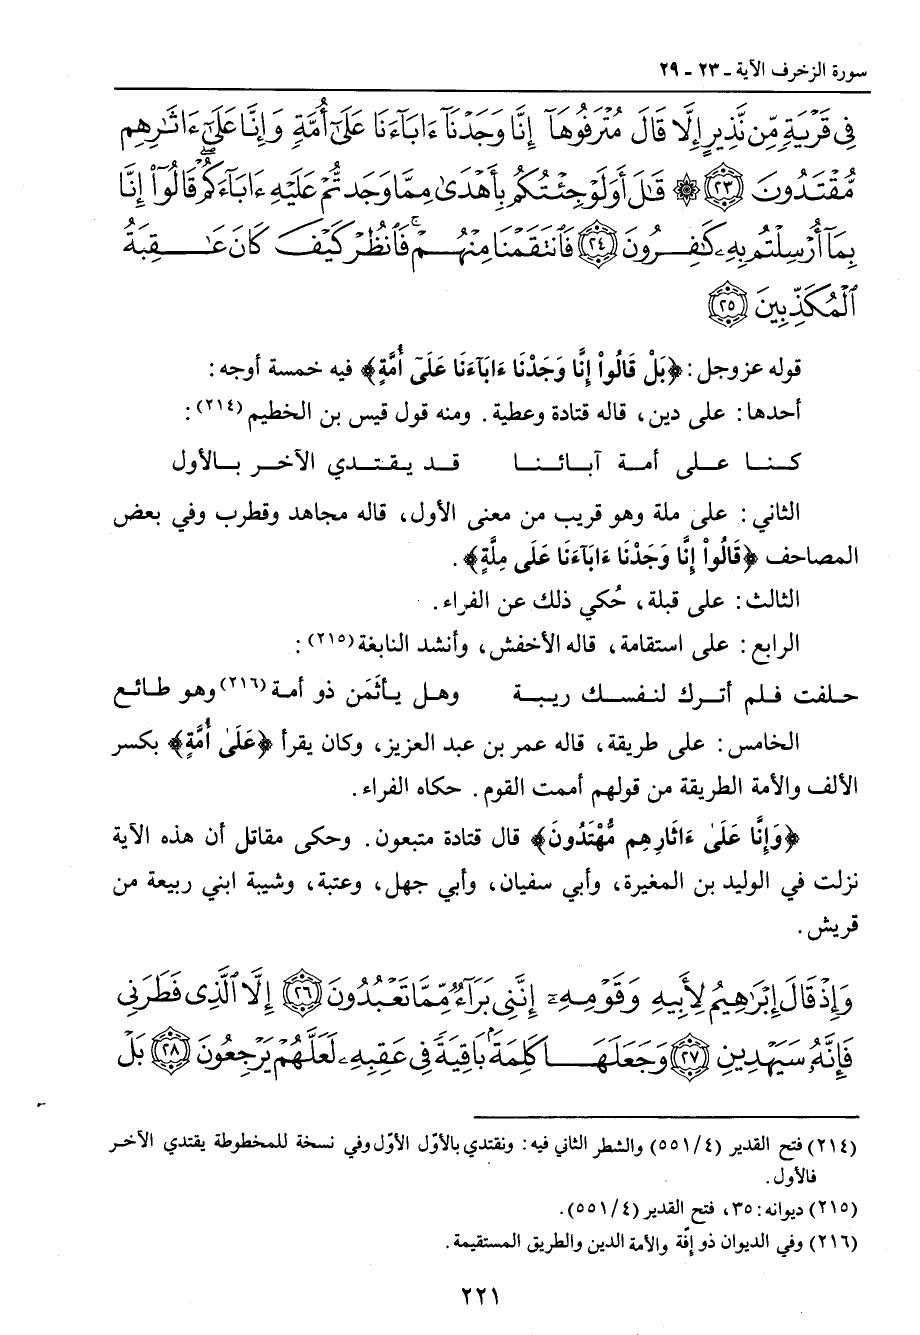 سورة الزخرف الآية ـ ٢٣ ـ ٢٩
فِي قَرْيَةٍ مِّن نَّذِيرٍ إِلَّا قَالَ مُتْرَفُوهَآ إِنَّا وَجَدْنَآ ءَابَآءَنَا عَلَىٰٓ أُمَّةٍ وَإِنَّا عَلَىٰٓ ءَاثَٰرِهِم
مُّقْتَدُونَ ٢٣ ۞ قَٰلَ أَوَلَوْ جِئْتُكُم بِأَهْدَىٰ مِمَّا وَجَدتُّمْ عَلَيْهِ ءَابَآءَكُمْ ۖ قَالُوٓا۟ إِنَّا
بِمَآ أُرْسِلْتُم بِهِۦ كَٰفِرُونَ ٢٤ فَٱنتَقَمْنَا مِنْهُمْ ۖ فَٱنظُرْ كَيْفَ كَانَ عَٰقِبَةُ
ٱلْمُكَذِّبِينَ ٢٥
قوله عز وجل: ﴿بَلْ قَالُواْ إِنَّا وَجَدْنَا ءَابَآءَنَا عَلَىٰٓ أُمَّةٍ﴾ فيه خمسة أوجه:
أحدها: على دين، قاله قتادة وعطية. ومنه قول قيس بن الخطيم (٢١٤):
كنا على أمة آبائنا قد يقتدي الآخر بالأول
الثاني: على ملة وهو قريب من معنى الأول، قاله مجاهد وقطرب وفي بعض
المصاحف ﴿قَالُواْ إِنَّا وَجَدْنَا ءَابَآءَنَا عَلَى مِلَّةٍ﴾.
الثالث: على قبلة، حُكي ذلك عن الفراء.
الرابع: على استقامة، قاله الأخفش، وأنشد النابغة (٢١٥):
حلفت فلم أترك لنفسك ريبة وهل يأثَمَن ذو أمة (٢١٦) وهو طائع
الخامس: على طريقة، قاله عمر بن عبد العزيز، وكان يقرأ ﴿عَلَىٰ أُمَّةٍ﴾ بكسر
الألف والأمة الطريقة من قولهم أممت القوم. حكاه الفراء.
﴿وَإِنَّا عَلَىٰ ءَاثَارِهِم مُّهْتَدُونَ﴾ قال قتادة متبعون. وحكى مقاتل أن هذه الآية
نزلت في الوليد بن المغيرة، وأبي سفيان، وأبي جهل، وعتبة، وشيبة ابني ربيعة من
قريش.
وَإِذْ قَالَ إِبْرَٰهِيمُ لِأَبِيهِ وَقَوْمِهِۦٓ إِنَّنِى بَرَآءٌ مِّمَّا تَعْبُدُونَ ٢٦ إِلَّا ٱلَّذِى فَطَرَنِى
فَإِنَّهُۥ سَيَهْدِينِ ٢٧ وَجَعَلَهَا كَلِمَةًۢ بَاقِيَةً فِى عَقِبِهِۦ لَعَلَّهُمْ يَرْجِعُونَ ٢٨ بَلْ
(٢١٤) فتح القدير (٤/٥٥١) والشطر الثاني فيه: ونقتدي بالأوّل الأوّل وفي نسخة للمخطوطة يقتدي الآخر
فالأول.
(٢١٥) ديوانه: ٣٥، فتح القدير (٤/٥٥١).
(٢١٦) وفي الديوان ذو إمَّة والأمة الدين والطريق المستقيمة.
٢٢١